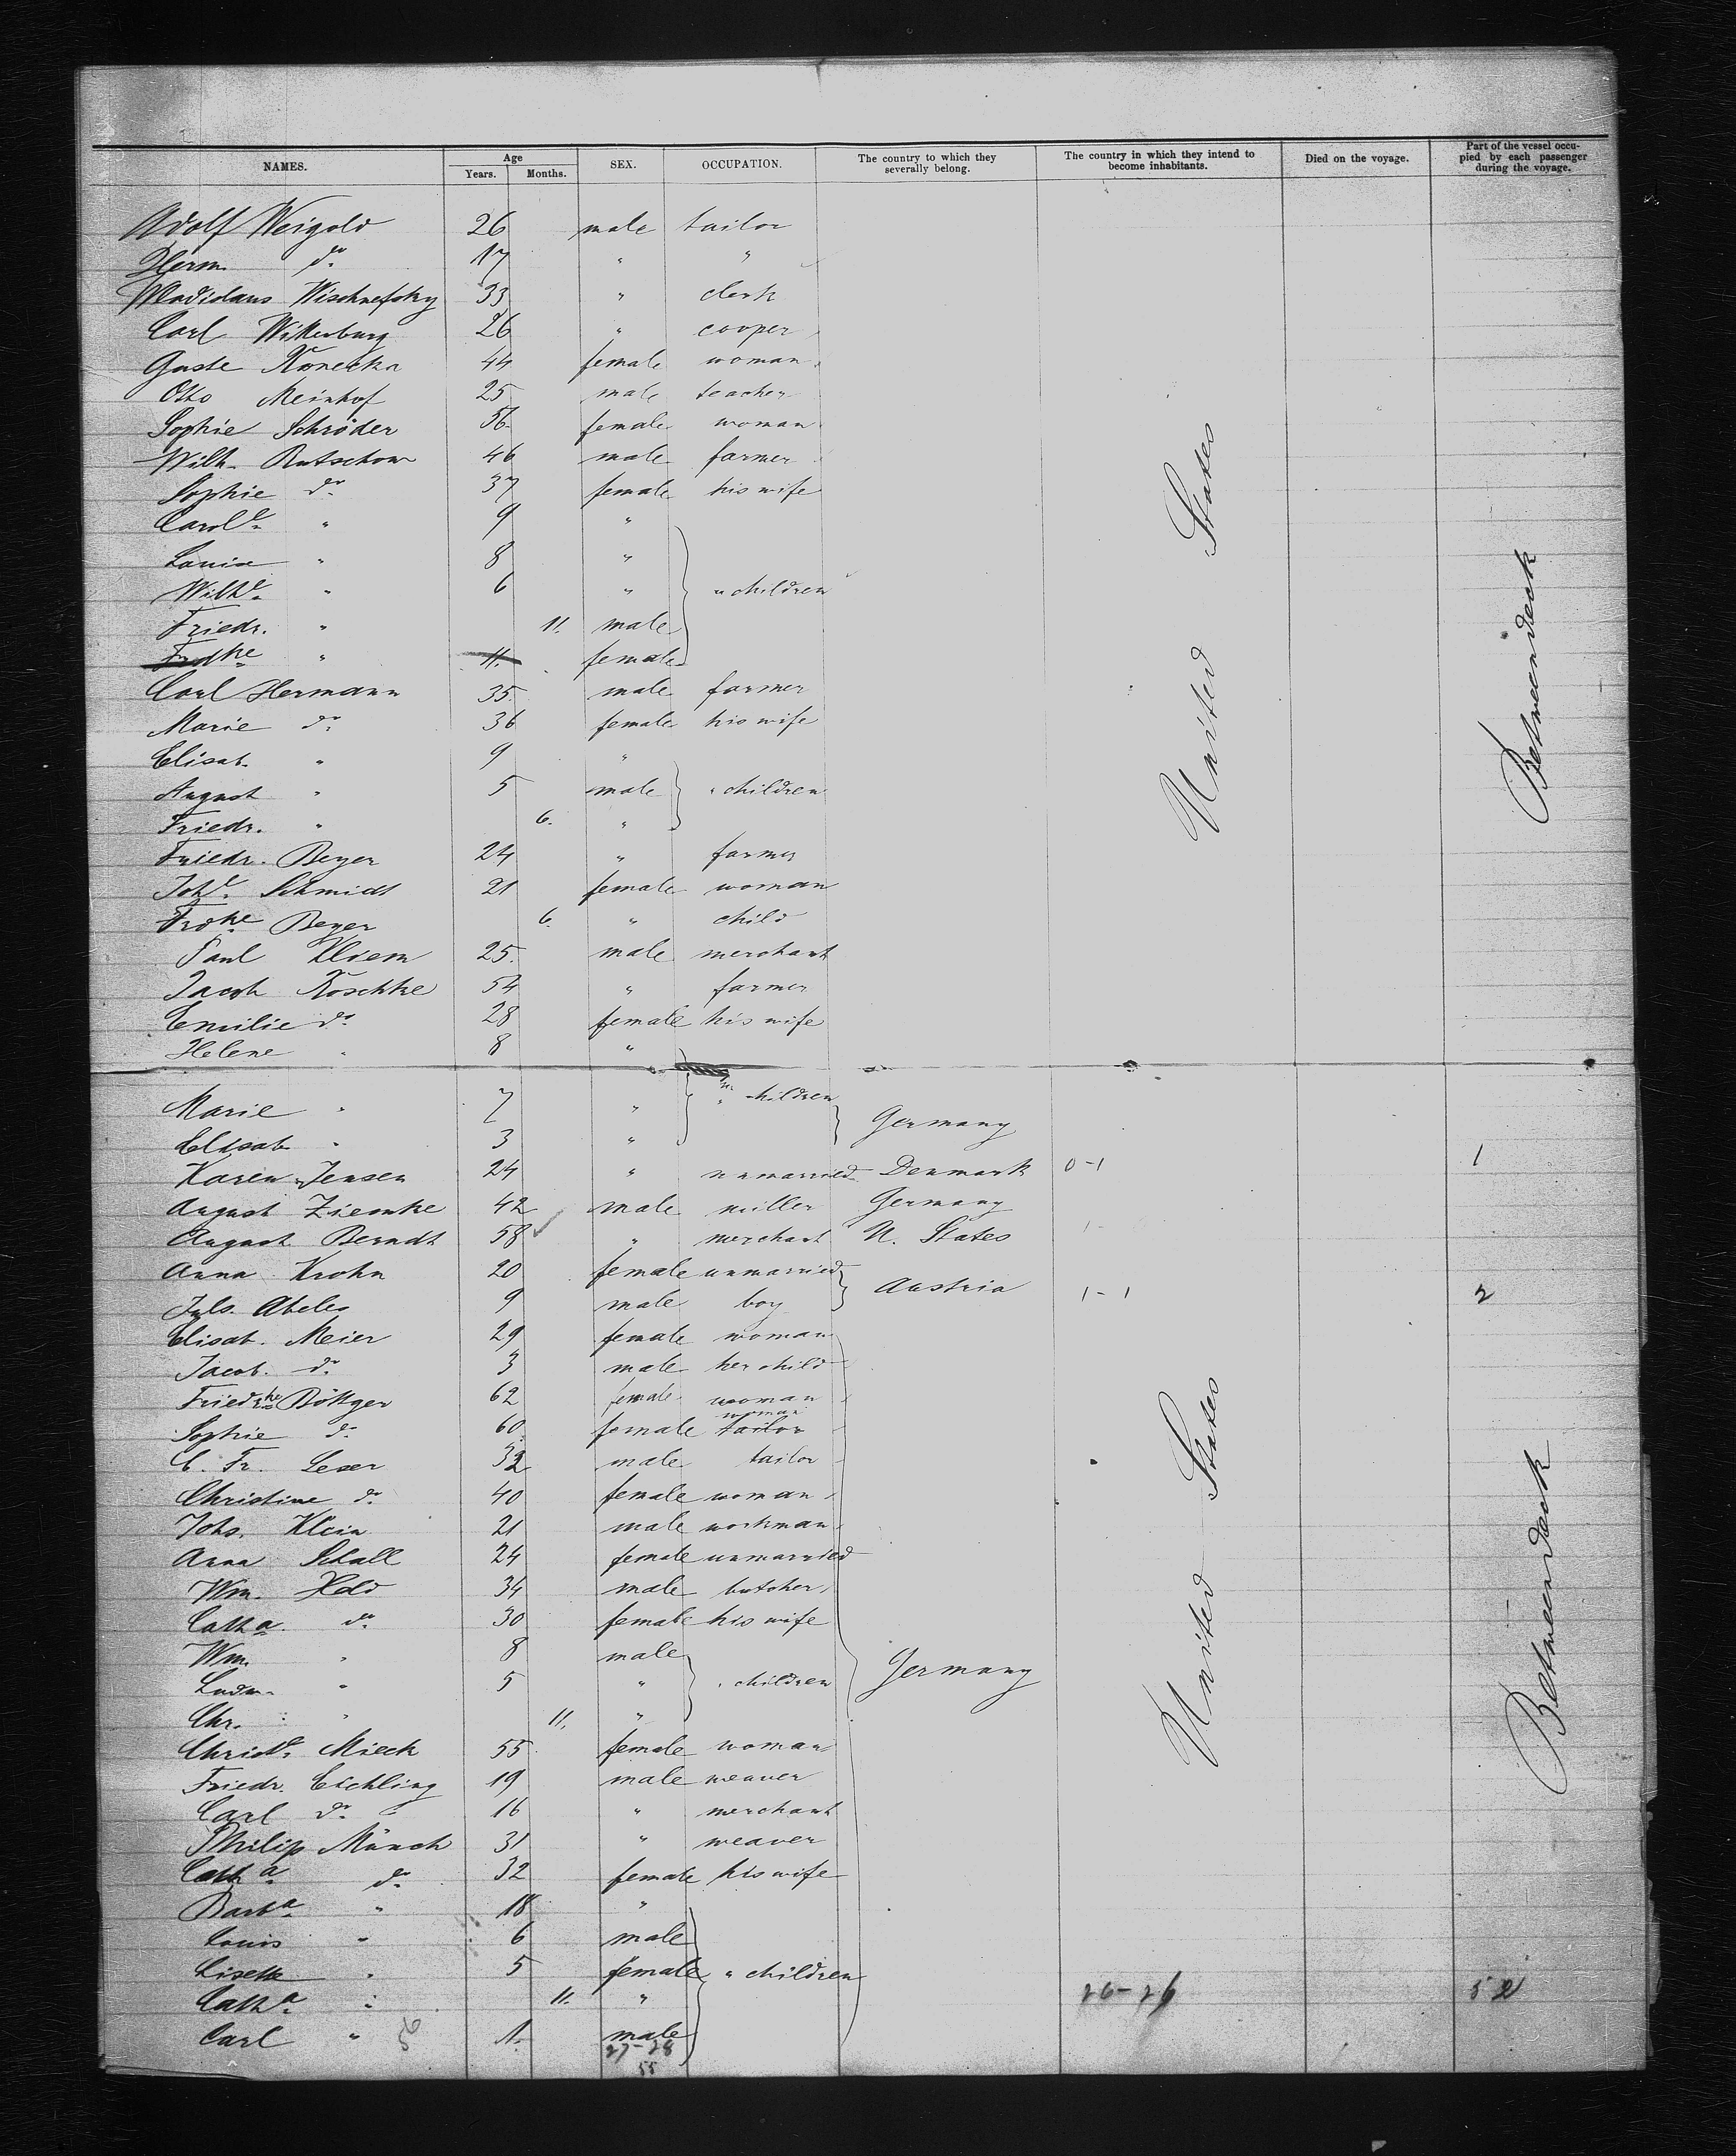 NAMES. Age Years. Months. SEX. OCCUPATION. The country to which they severally belong. The country in which they intend to become inhabitants. Died on the voyage. Part of the vessel occupied by each passenger during the voyage.
Adolf Weigold 26 male tailor
Herm. do 17 " "
Wladislaus Wischnefsky 33 " clerk
Carl Wittenburg 26 " cooper
Guste 44 female woman
Otto Meinhof 25 male teacher
Sophie Schröder 56 female woman
Wilh. Rutschow 46 male farmer
Sophie do 37 female his wife
Carole " 9 "
Louise " 8 "
Wilhe " 6 " " children
Friedr. " 11. male
Frdke " 11. female
Carl Hermann 35. male farmer
Marie do 36 female his wife
Elisab. " 9 "
August " 5 male " children
Friedr. " 6. "
Friedr. Beyer 24 " farmer
Johe. Schmidt 21 female woman
Frdke Beyer 6. " child
Paul Kliem 25. male merchant
Jacob Köschke 54 " farmer
Emilie do 28 female his wife
Helene " 8 "
Marie " 7 " " children
Elisab " 3 " Germany
Karen Jensen 24 " unmarried Denmark 0-1 1
August Ziemke 42 male miller Germany
August Berndt 58 " merchant U. States
Anna Krohn 20 female unmarried
Juls. Abeles 9 male boy Austria 1-1 2
Elisab. Meier 29 female woman
Jacob. do 3 male her child
Friedrke Böttger 62 female woman
Sophie do 60. female tailor woman
C. Fr. Leser 32 male tailor
Christine do 40 female woman
Johs. Klein 21 male workman
Anna Schall 24 female unmarried
Wm. Held 34 male butcher
Catha. do 30 female his wife
Wm. " 8 male
Ludw. " 5 " " children Germany
Chr. " 11. "
Christe. Mieck 55 female woman
Friedr. Eichling 19 male weaver
Carl do 16 " merchant
Philip Münch 31 " weaver
Catha do 32 female his wife
Barba " 18 "
Louis " 6 male
Lisette " 5 female " children
Catha " 11. " 26-26 52
Carl " 1. male
27-28
55
United States
Betweendeck
United States
Betweendeck